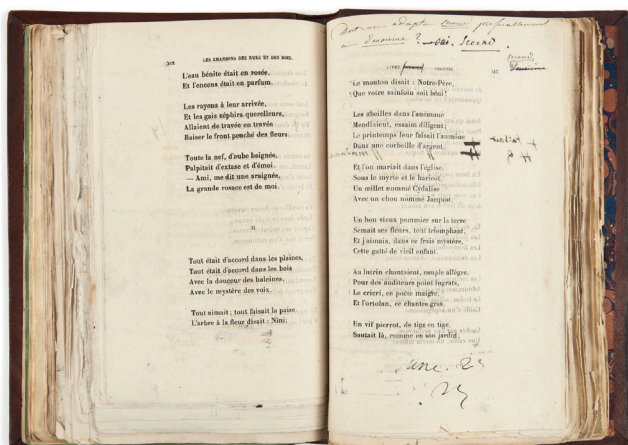 LES CHANSONS DES RUES ET DES BOIS.
L'eau bénite était en rosée,
Et l'encens était en parfum.
Les rayons à leur arrivée,
Et les gais zéphirs querelleurs,
Allaient de travée en travée
Baiser le front penché des fleurs.
Toute la nef, d'aube baignée,
Palpitait d'extase et d'émoi.
— Ami, me dit une araignée,
La grande rosace est de moi.
Tout était d'accord dans les plaines,
Tout était d'accord dans les bois
Avec la douceur des haleines,
Avec le mystère des voix.
Tout aimait; tout faisait la paire.
L'arbre à la fleur disait : Nini;
Doit-on adopter second préférablement
à deuxième ? oui. Second.
second
LIVRE
Deuxième
Le mouton disait : Notre-Père,
Que votre sainfoin soit béni!
Les abeilles dans l'anémone
Mendiaient, essaim diligent;
Le printemps leur faisait l'aumône
Dans une corbeille d'argent.
Et l'on mariait dans l'église,
Sous le myrte et le haricot,
Un œillet nommé Cydalise
Avec un chou nommé Jacquot.
Un bon vieux pommier sur la terre
Semait ses fleurs, tout triomphant,
Et j'aimais, dans ce frais mystère,
Cette gaîté de vieil enfant.
Au lutrin chantaient, couple allègre,
Pour des auditeurs point ingrats,
Le cricri, ce poëte maigre,
Et l'ortolan, ce chantre gras.
Un vif pierrot, de tige en tige,
Sautait là, comme en son jardin;